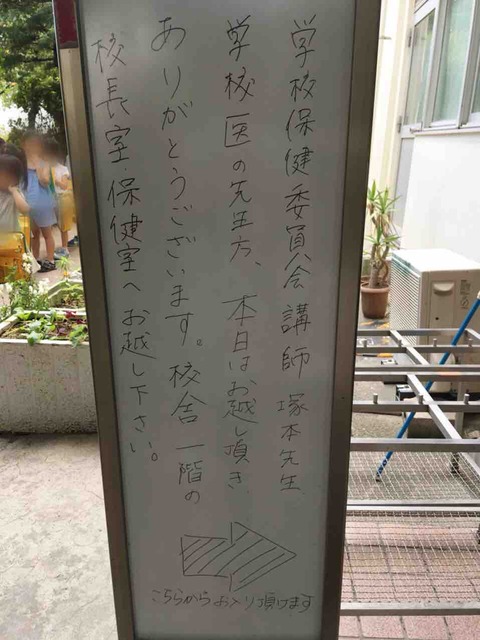 学校保健委員会 講師 塚本先生
学校医の先生方、本日はお越し頂き
ありがとうございます。校舎一階の
校長室・保健室へお越し下さい。
こちらからお入り頂けます